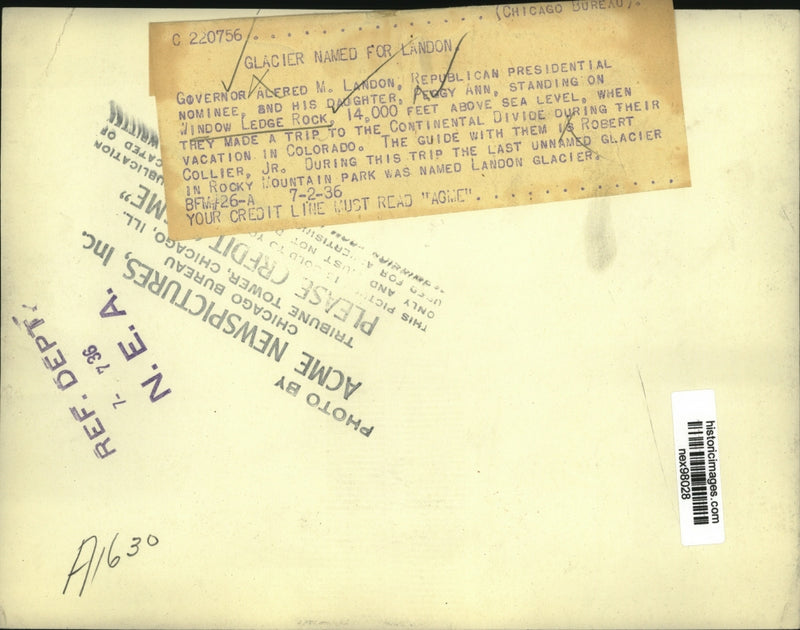 C 220756 (CHICAGO BUREAU).
GLACIER NAMED FOR LANDON.
GOVERNOR ALFRED M. LANDON, REPUBLICAN PRESIDENTIAL
NOMINEE, AND HIS DAUGHTER, PEGGY ANN, STANDING ON
WINDOW LEDGE ROCK, 14,000 FEET ABOVE SEA LEVEL, WHEN
THEY MADE A TRIP TO THE CONTINENTAL DIVIDE DURING THEIR
VACATION IN COLORADO. THE GUIDE WITH THEM IS ROBERT
COLLIER, JR. DURING THIS TRIP THE LAST UNNAMED GLACIER
IN ROCKY MOUNTAIN PARK WAS NAMED LANDON GLACIER.
BFM#26-A 7-2-36
YOUR CREDIT LINE MUST READ "ACME"
PHOTO BY
ACME NEWSPICTURES, Inc.
CHICAGO BUREAU
TRIBUNE TOWER, CHICAGO, ILL.
PLEASE CREDIT
THIS PICTURE IS SOLD TO YOU
ONLY AND MUST NOT
USED FOR ADVERTISING
PUBLICATION
WRITTEN
REF. DEPT.
7- 7 36
N. E. A.
A1630
historicimages.com
nex98028